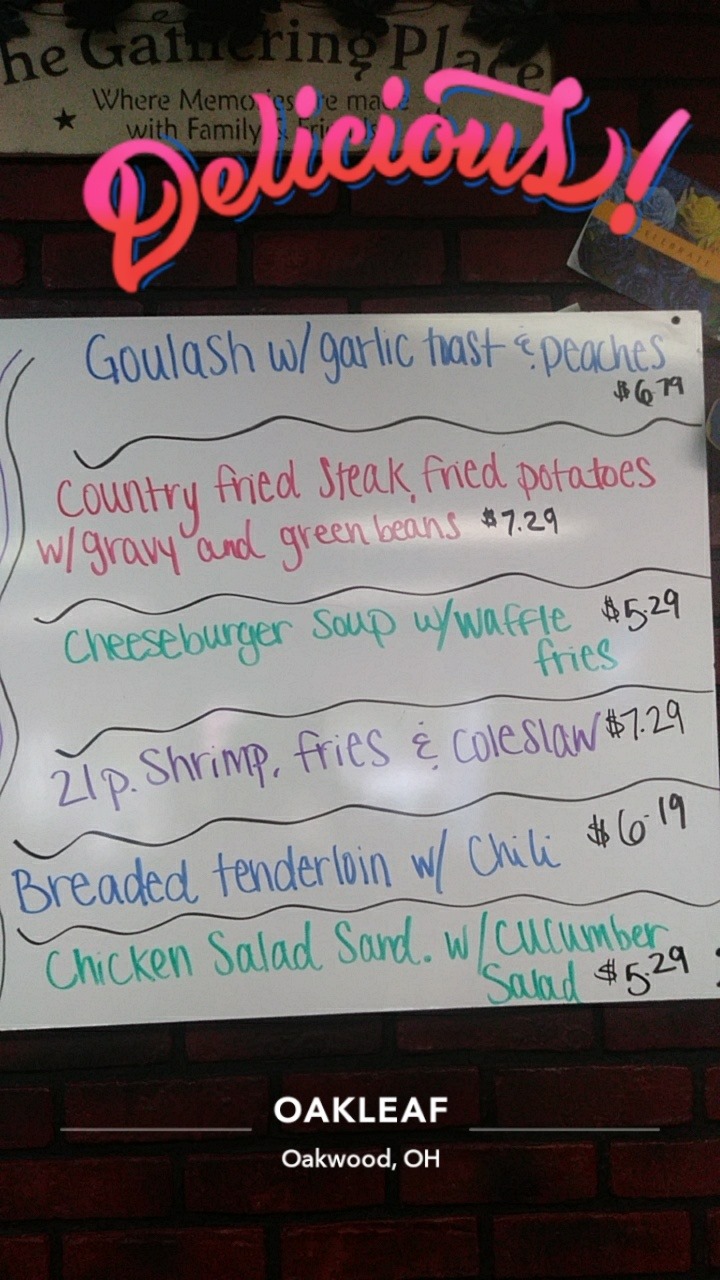 he Gathering Place
Where Memories are made
with Family & Friends
Delicious!
CELEBRATE
Goulash w/ garlic toast & peaches
$6.79
Country fried Steak, fried potatoes
w/gravy and green beans $7.29
Cheeseburger Soup w/waffle $5.29
fries
21p. Shrimp, fries & coleslaw $7.29
Breaded tenderloin w/ Chili $6.19
Chicken Salad Sand. w/cucumber
Salad $5.29
OAKLEAF
Oakwood, OH